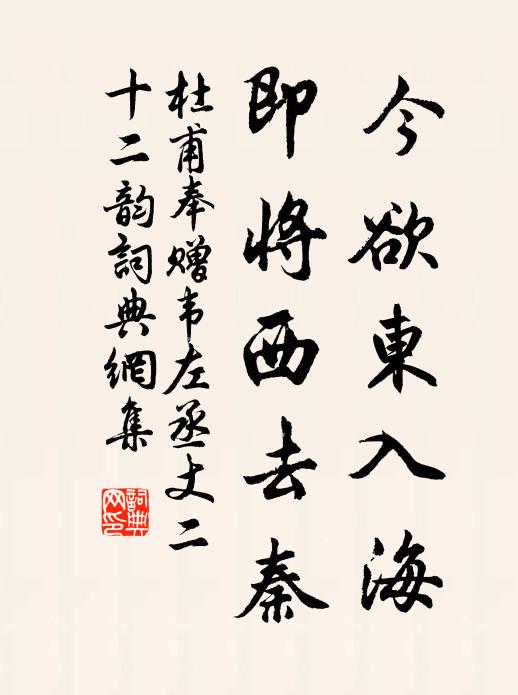 今欲東入海
即將西去秦
杜甫奉赠韦左丞丈二
十二韵詞典網集
詞典
网印